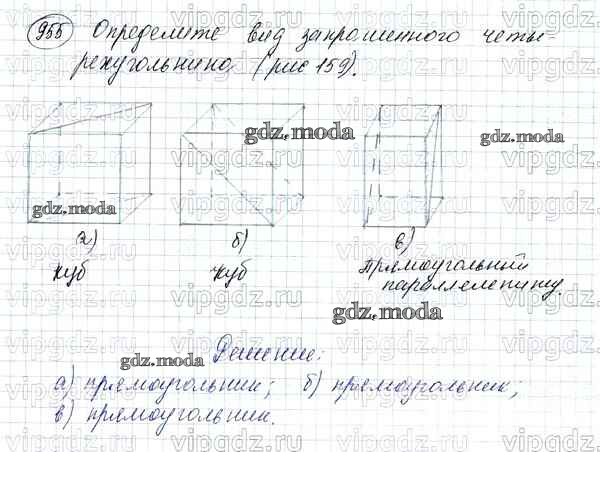 955 Определите вид запрошенного четы-
рехугольника (рис 159).
gdz.moda
gdz.moda
gdz.moda
а) б) в)
куб куб Прямоугольный
параллелепипед.
gdz.moda
Решение:
gdz.moda
а) прямоугольник; б) прямоугольник;
в) прямоугольник.
vipgdz.ru